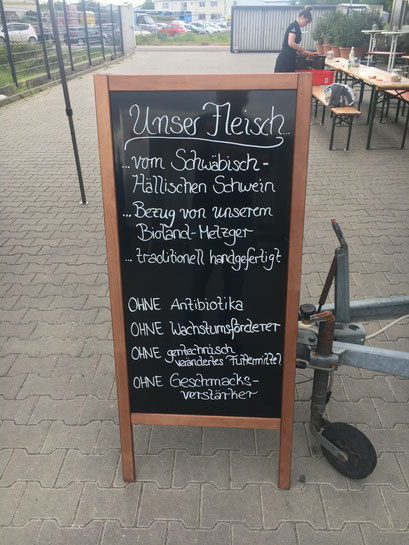 Unser Fleisch...
... vom Schwäbisch-
Hällischen Schwein
... Bezug von unserem
Bioland-Metzger
... traditionell handgefertigt
OHNE Antibiotika
OHNE Wachstumsförderer
OHNE gentechnisch
verändertes Futtermittel
OHNE Geschmacks-
verstärker